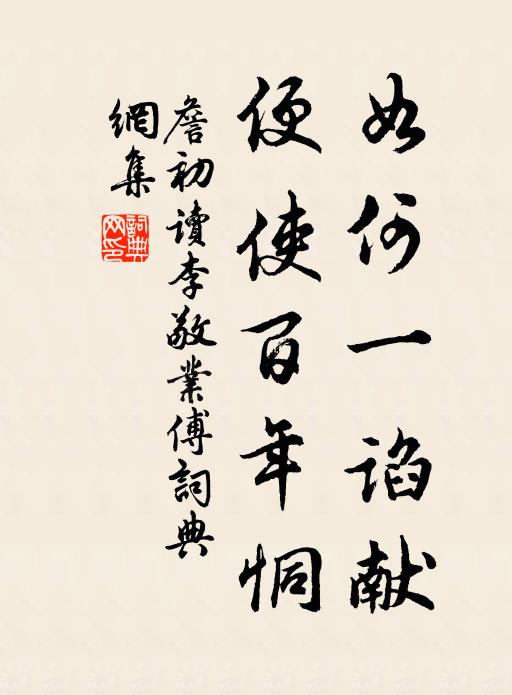 如何一谄献
便使百年恫
詹初读李敬業傅詞典
網集
詞典網印